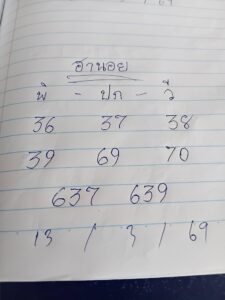 ฮานอย
พิ - ปก - วี
36 37 38
39 69 70
637 639
13 / 3 / 69